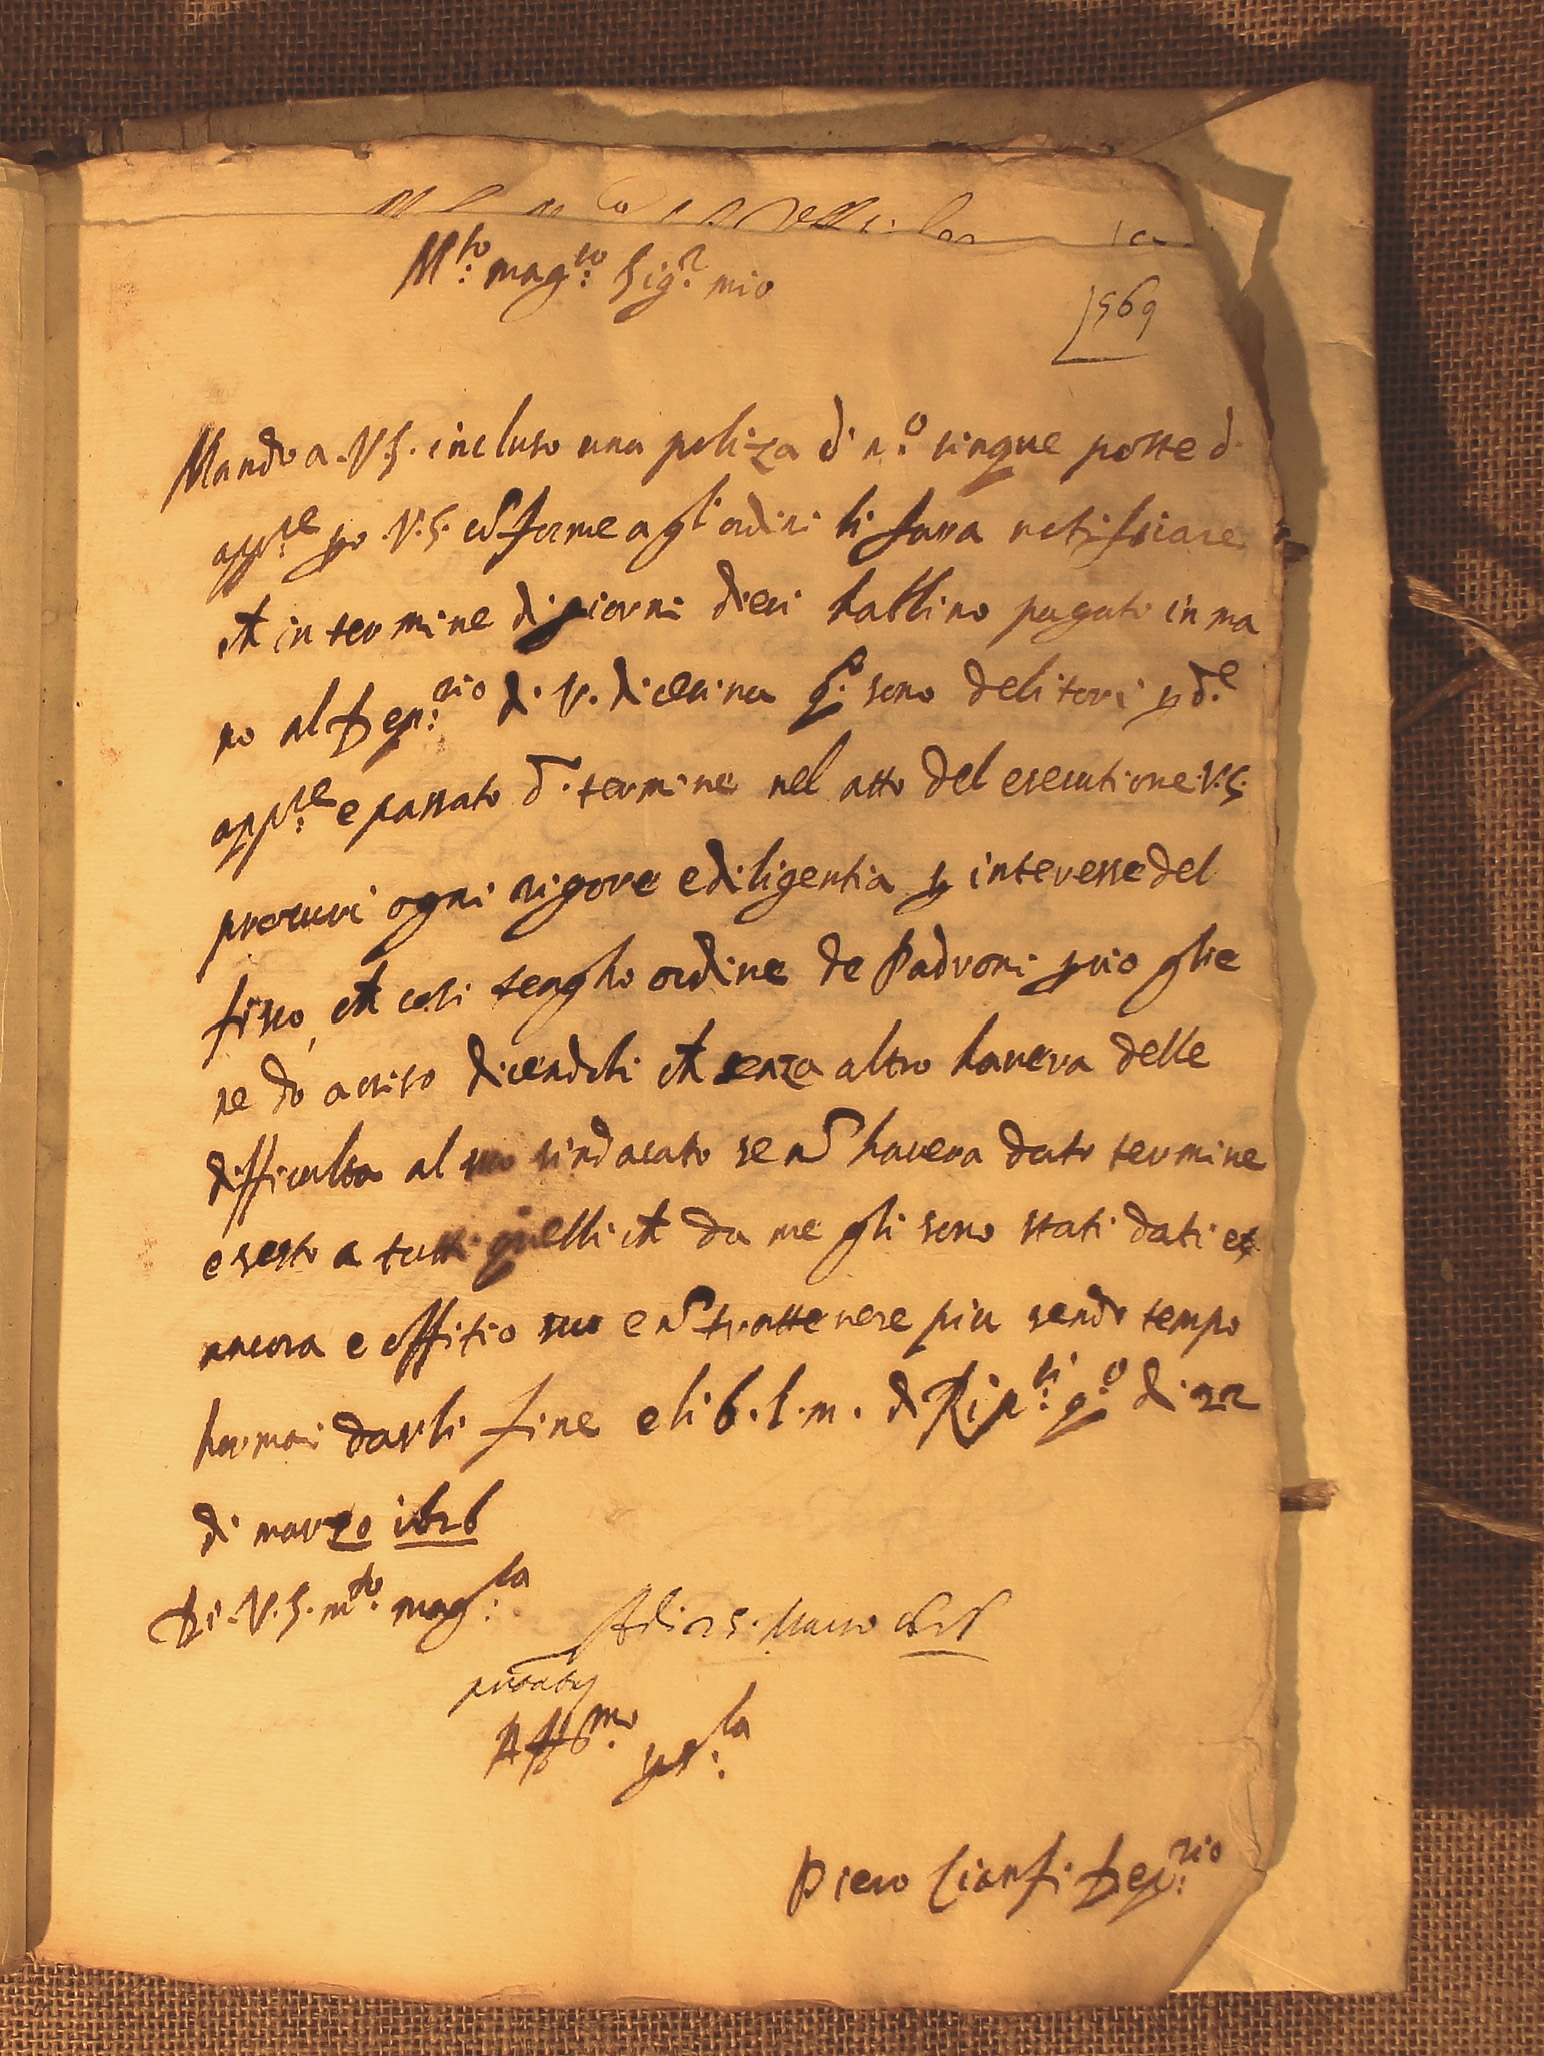 M.to mag.co Sig.r mio
1569
Mando a .V.S. incluso una poliza di n.o cinque poste d.
app.re V.S. conforme agl'ordini li farra notificare
ch in termine di giorni dieci habbino pagato in ma
no al Dep.rio di V. di cecina q.o sono debitori p d.e
app.re e passato d. termine nel atto del esecutione V.S.
procuri ogni rigore e diligentia p interesse del
fisco, ch cosi tengho ordine de Padroni pcio glie
ne dò aviso dicendoli ch senza altro havera delle
difficulta al suo sindacato se nō havera dato termine
e sesto a tutti quelli ch da me gli sono stati dati et
ancora e offitio suo e nō trattenere piu sendo tempo
hormai darli fine e li b.l.m. di Rip.ti g.o di 22
di marzo 1626
Di .V.S. m.to mag.ca
Adi 25. Marzo 1626
Aff.mo
Piero Cianfi Dep.rio